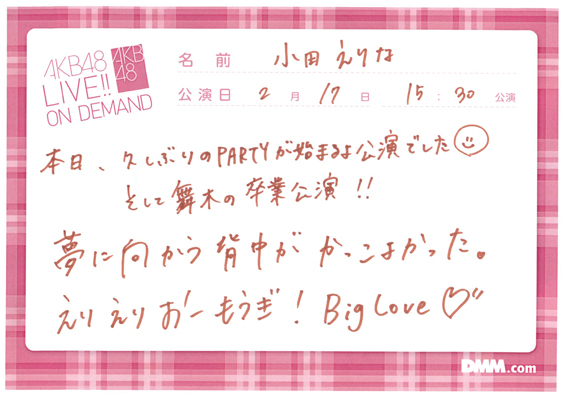 AKB48
LIVE!!
ON DEMAND
AKB
48
名前 小田えりな
公演日 2月17日 15:30 公演
本日、久しぶりのPARTYが始まるよ公演でした
そして舞木の卒業公演!!
夢に向かう背中がかっこよかった。
えりえりおーもうぎ! Big Love♡
DMM.com